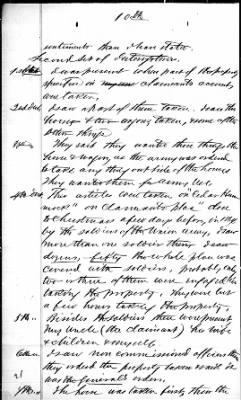 10th
sentiments than I have stated.
Second Set of Interrogatories.
1st
I was present when part of the property
specified in claimants account,
was taken.
2nd Int.
I saw a part of them taken. I saw the
horses & two wagons taken, some of the
other things
They said they wanted these things the
horse & wagon, as the army was ordered
to take any thing out side of the houses
They wanted them for army use.
4th Int.
The articles were taken, on Cedar Run
on "Claimants place" close
to Christmas a few days before, in 1864
by the soldiers of the Union army, I saw
more than one soldier there. I saw
dozens, fifty the whole place was
covered with soldiers, probably only
two or three of them were engaged in
taking the property, they were but
a few hours taking the property.
5th
Besides the soldiers there were present
my uncle (the claimant) his wife
& children & myself.
I saw non commissioned officers there
they ordered the property taken & said it
was the General's orders.
The horse was taken first, then the